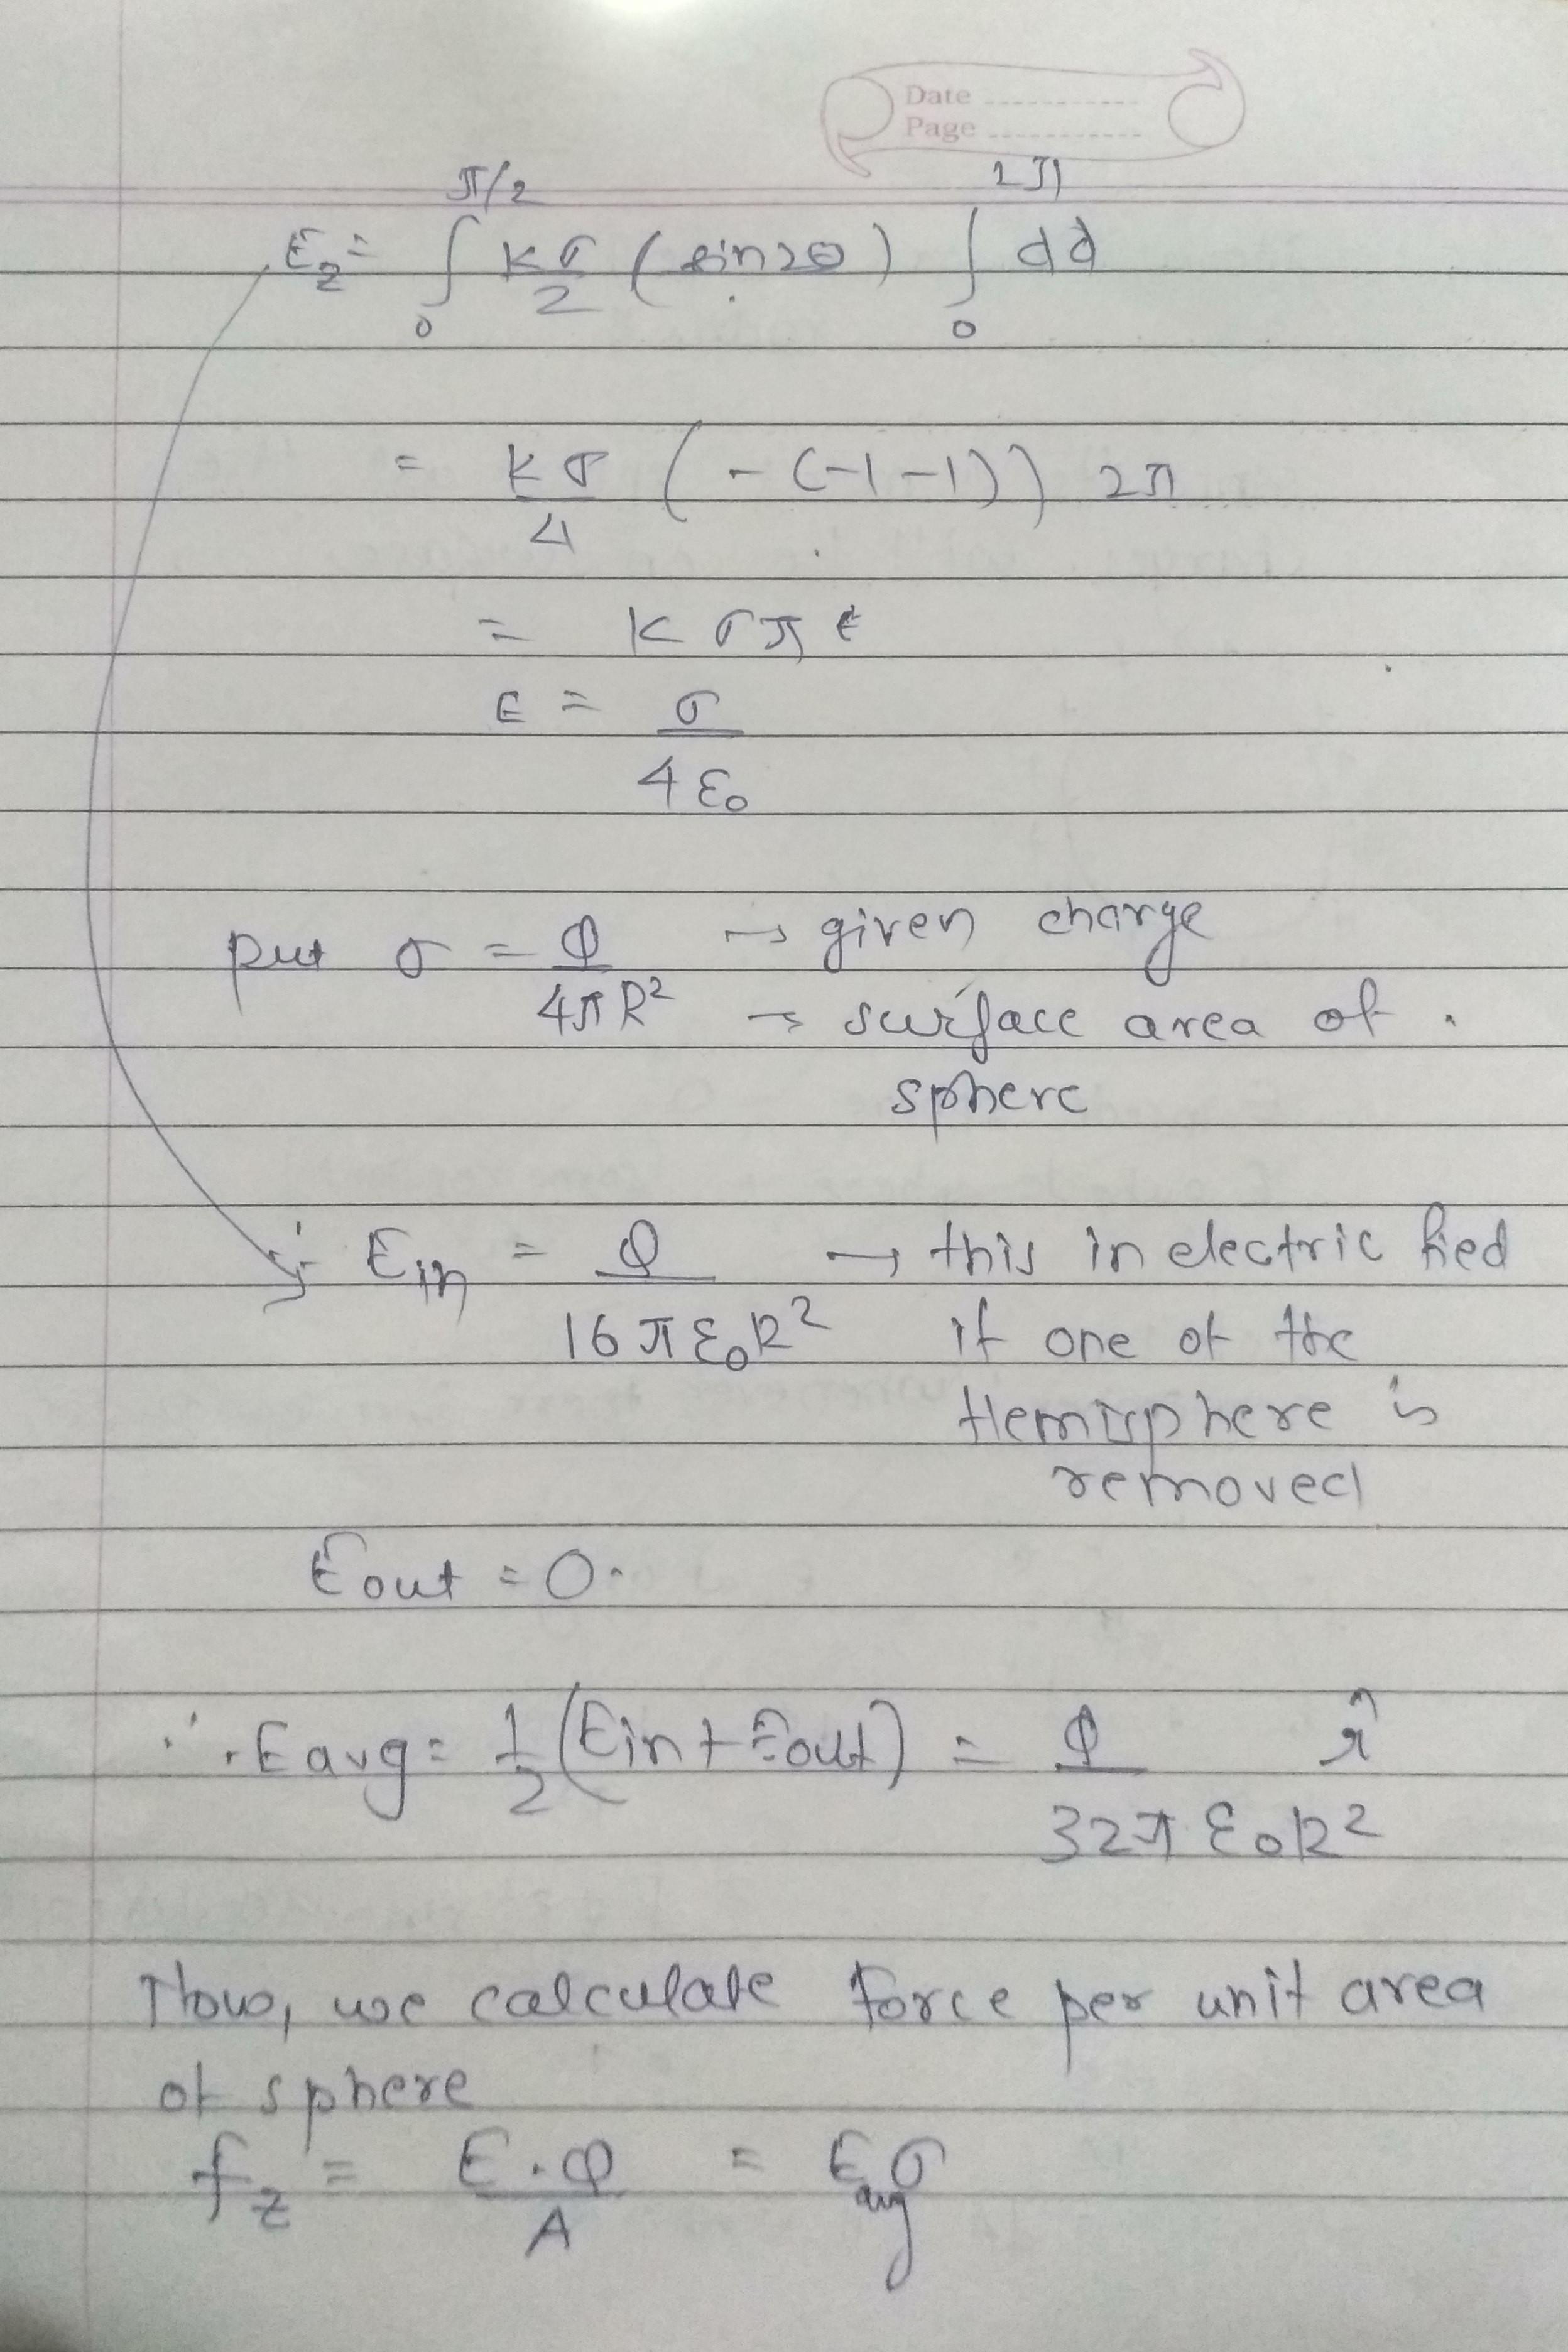 Date
Page
E_z = ∫_0^{π/2} kσ/2 (sin2θ) ∫_0^{2π} dϕ
= kσ/4 (-(-1-1)) 2π
= kσπ
E = σ/4ε₀
put σ = Q/4πR² → given charge
→ surface area of
sphere
∴ E_in = Q/16πε₀R² → this in electric fied
if one of the
Hemisphere is
removed
E_out = 0.
∴ E_avg = 1/2 (E_in + E_out) = Q/32πε₀R² r̂
Now, we calculate force per unit area
of sphere
f_z = E.Q/A = E_avg σ